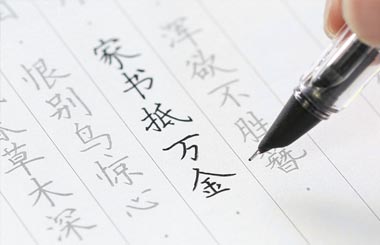 春草木深
恨别鸟惊心
家书抵万金
浑欲不胜簪